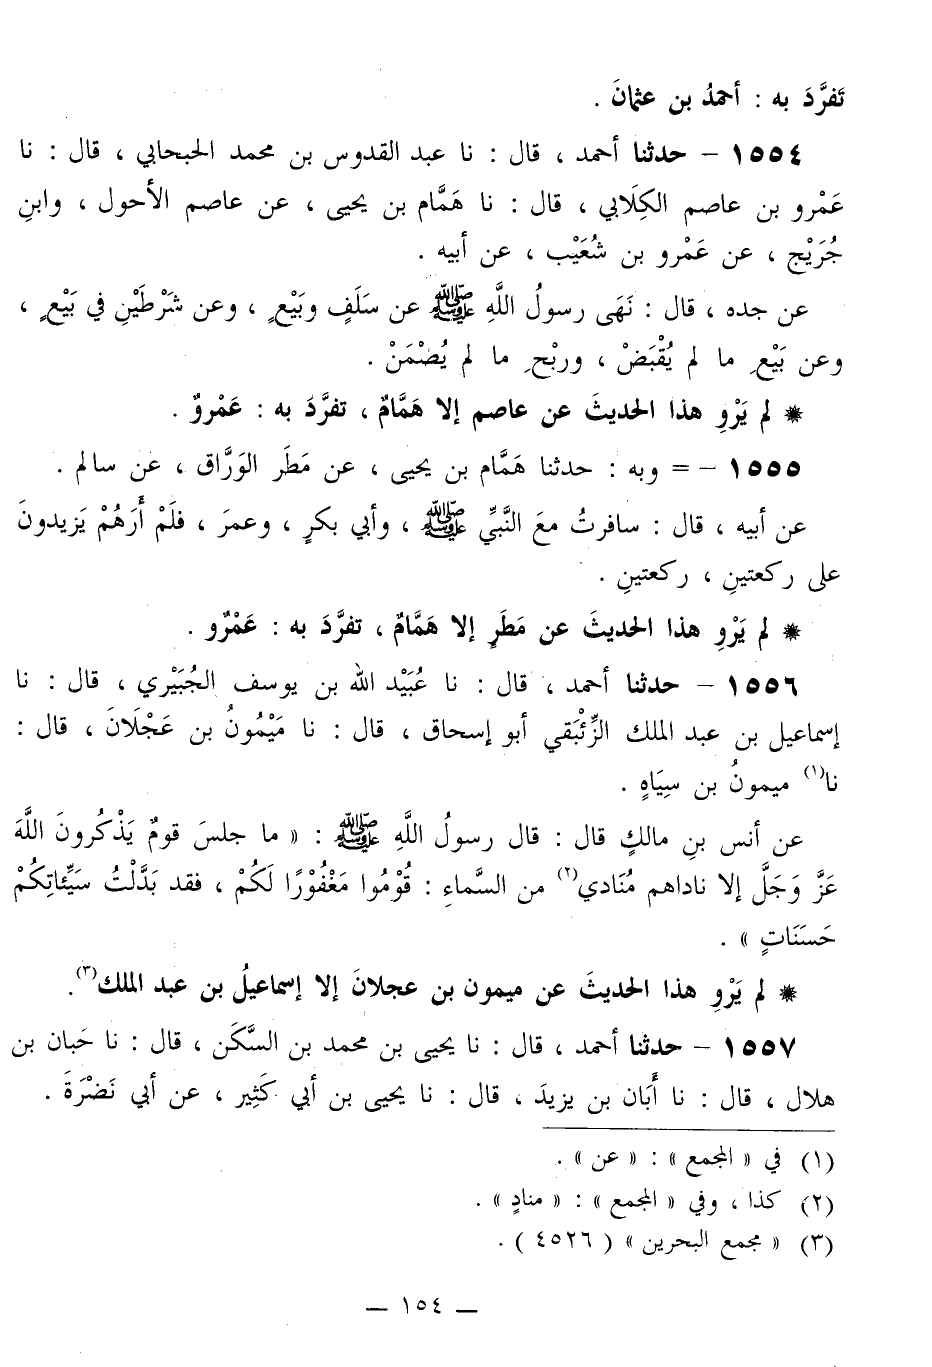 تَفرَّدَ به : أحمدُ بن عثمانَ .
١٥٥٤ – حدثنا أحمد ، قال : نا عبد القدوس بن محمد الحبحابي ، قال : نا
عَمْرو بن عاصم الكِلَابي ، قال : نا هَمَّام بن يحيى ، عن عاصم الأحول ، وابنِ
جُرَيْج ، عن عَمْرو بن شُعَيْب ، عن أبيه .
عن جده ، قال : نَهَى رسولُ اللَّهِ ﷺ عن سَلَفٍ وبَيْعٍ ، وعن شَرْطَيْنِ في بَيْعٍ ،
وعن بَيْعِ ما لم يُقْبَضْ ، وربْحِ ما لم يُضْمَنْ .
* لم يَرْوِ هذا الحديثَ عن عاصم إلا هَمَّامٌ ، تفرَّدَ به : عَمْروٌ .
١٥٥٥ – = وبه : حدثنا هَمَّام بن يحيى ، عن مَطَر الوَرَّاق ، عن سالم .
عن أبيه ، قال : سافرتُ معَ النَّبيِّ ﷺ ، وأبي بكرٍ ، وعمرَ ، فلَمْ أَرَهُمْ يَزيدونَ
على ركعتينِ ، ركعتينِ .
* لم يَرْوِ هذا الحديثَ عن مَطَرٍ إلا هَمَّامٌ ، تفرَّدَ به : عَمْرٌو .
١٥٥٦ – حدثنا أحمد ، قال : نا عُبَيْد الله بن يوسف الجُبَيْري ، قال : نا
إسماعيل بن عبد الملك الزِّئْبَقي أبو إسحاق ، قال : نا مَيْمُونُ بن عَجْلَانَ ، قال :
نا(١) ميمونُ بن سِيَاهٍ .
عن أنس بنِ مالكٍ قال : قال رسولُ اللَّهِ ﷺ : « ما جلسَ قومٌ يَذْكُرونَ اللَّهَ
عَزَّ وَجَلَّ إلا ناداهم مُنَادي(٢) من السَّماءِ : قُوْمُوا مَغْفُورًا لَكُمْ ، فقد بَدَّلْتُ سَيِّئاتِكُمْ
حَسَنَاتٍ » .
* لم يَرْوِ هذا الحديثَ عن ميمون بن عجلانَ إلا إسماعيلُ بن عبد الملك(٣).
١٥٥٧ – حدثنا أحمد ، قال : نا يحيى بن محمد بن السَّكَن ، قال : نا حَبان بن
هلال ، قال : نا أَبَان بن يزيدَ ، قال : نا يحيى بن أبي كَثِير ، عن أبي نَضْرَةَ .
(١) في « المجمع » : « عن » .
(٢) كذا ، وفي « المجمع » : « منادٍ » .
(٣) « مجمع البحرين » ( ٤٥٢٦ ) .
– ١٥٤ –